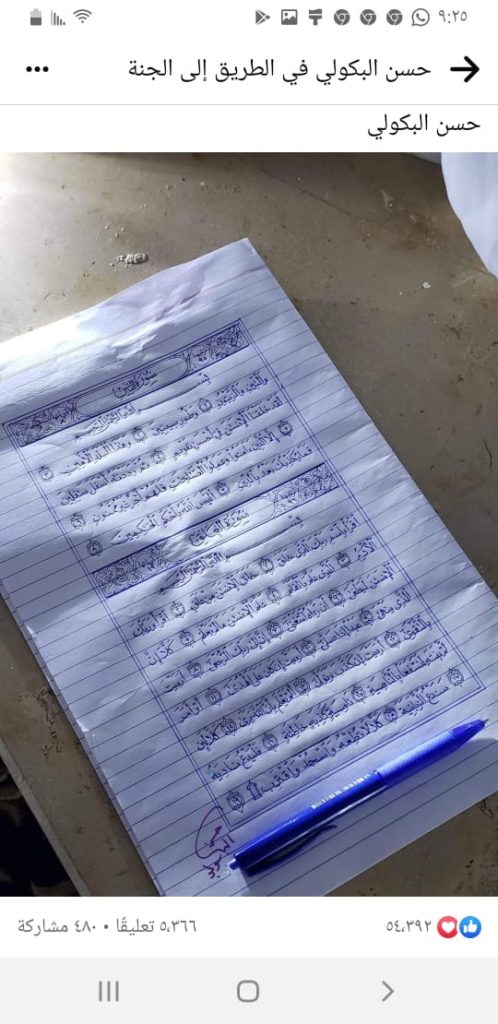 ٩:٢٥
حسن البكولي في الطريق إلى الجنة
حسن البكولي
سورة التين
بسم الله الرحمن الرحيم
والتين والزيتون وطور سينين وهذا البلد الأمين
لقد خلقنا الإنسان في أحسن تقويم ثم رددناه أسفل سافلين
إلا الذين آمنوا وعملوا الصالحات فلهم أجر غير ممنون
فما يكذبك بعد بالدين أليس الله بأحكم الحاكمين
سورة العلق
بسم الله الرحمن الرحيم
اقرأ باسم ربك الذي خلق خلق الإنسان من علق اقرأ وربك
الأكرم الذي علم بالقلم علم الإنسان ما لم يعلم كلا إن
الإنسان ليطغى أن رآه استغنى إن إلى ربك الرجعى أرأيت
الذي ينهى عبدا إذا صلى أرأيت إن كان على الهدى أو أمر
بالتقوى أرأيت إن كذب وتولى ألم يعلم بأن الله يرى كلا لئن
لم ينته لنسفعا بالناصية ناصية كاذبة خاطئة فليدع ناديه
سندع الزبانية كلا لا تطعه واسجد واقترب ۩
حسن
٥٤,٣٩٢
٥,٣٦٦ تعليقًا • ٤٨٠ مشاركة